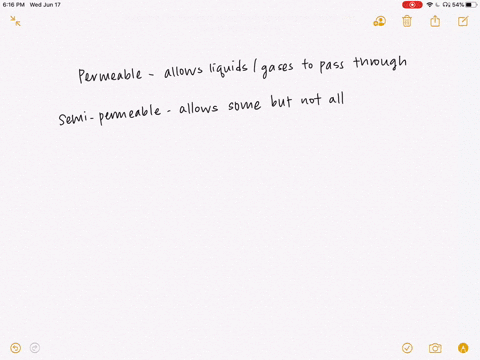 6:16 PM Wed Jun 17
54%
Permeable - allows liquids / gases to pass through
Semi-permeable - allows some but not all